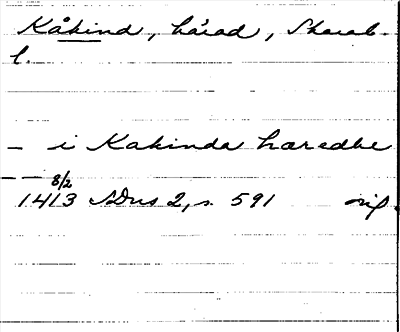 Kåkind, härad, Skarab.
l.
– i Kakinda hæredhe
– – 8/2
1413 SDns 2, s. 591 orig.